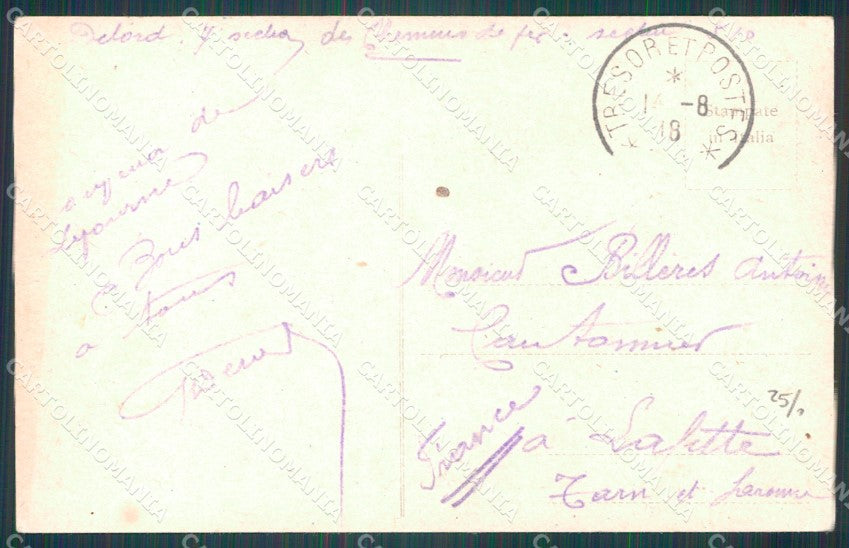 Delord 7 section des Chemins de fer secteur
TRESOR ET POSTES
14 -8
18
Stampate
in Italia
de
Bons baisers
a tous
Monsieur Billeres Antoine
Cantonnier
à Lafitte
Tarn et Garonne
France
25/.
CARTOLINOMANIA